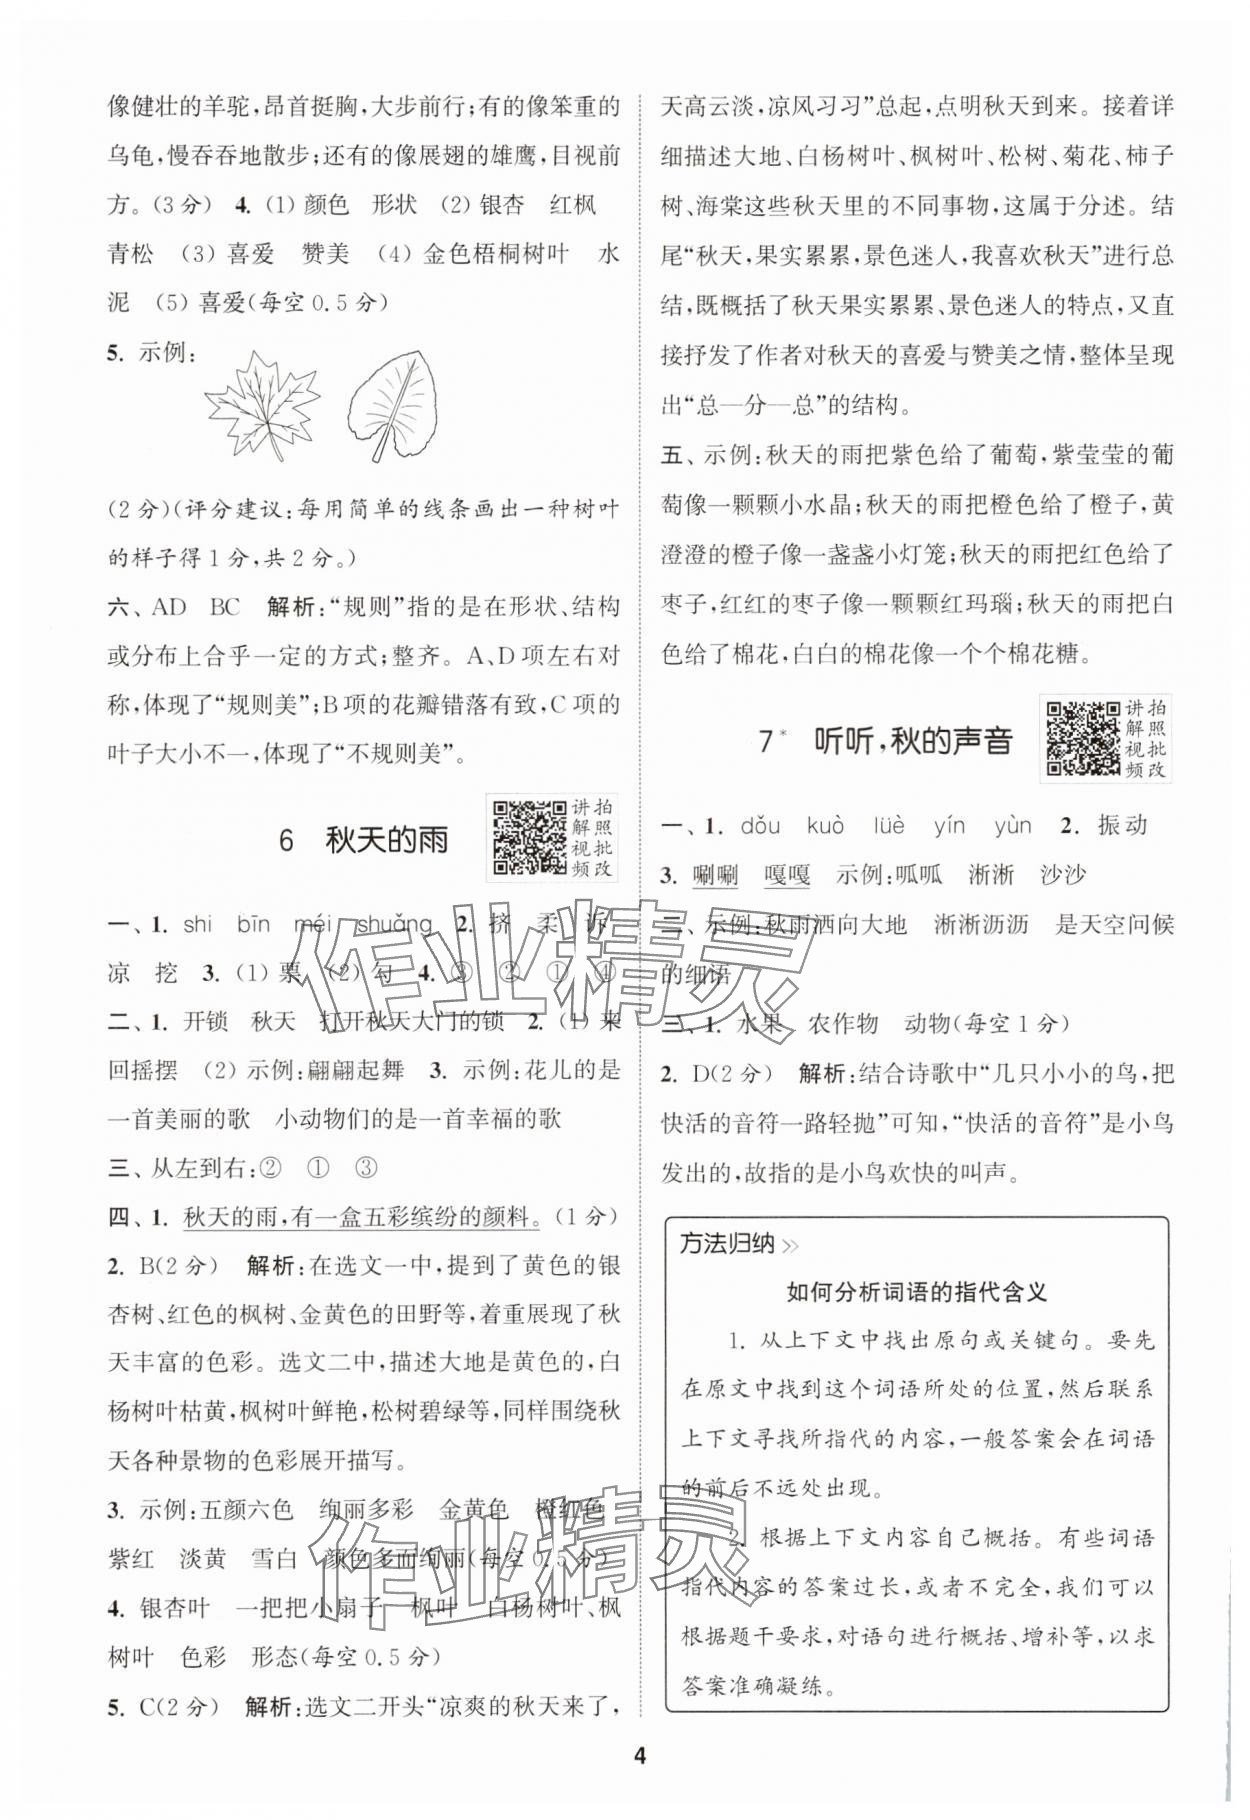 像健壮的羊驼,昂首挺胸,大步前行;有的像笨重的
乌龟,慢吞吞地散步;还有的像展翅的雄鹰,目视前
方。(3分) 4. (1) 颜色 形状 (2) 银杏 红枫
青松 (3) 喜爱 赞美 (4) 金色梧桐树叶 水
泥 (5) 喜爱(每空0.5分)
5. 示例:
(2分)(评分建议:每用简单的线条画出一种树叶
的样子得1分,共2分。)
六、AD BC 解析:“规则”指的是在形状、结构
或分布上合乎一定的方式;整齐。A、D项左右对
称,体现了“规则美”;B项的花瓣错落有致,C项的
叶子大小不一,体现了“不规则美”。
6 秋天的雨
讲解视频 拍照批改
一、1. shi bīn méi shuǎng 2. 挤 柔 诉
凉 挖 3. (1) 票 (2) 勾 4. ③ ② ① ④
二、1. 开锁 秋天 打开秋天大门的锁 2. (1) 来
回摇摆 (2) 示例:翩翩起舞 3. 示例:花儿的是
一首美丽的歌 小动物们的是一首幸福的歌
三、从左到右:② ① ③
四、1. 秋天的雨,有一盒五彩缤纷的颜料。(1分)
2. B(2分) 解析:在选文一中,提到了黄色的银
杏树、红色的枫树、金黄色的田野等,着重展现了秋
天丰富的色彩。选文二中,描述大地是黄色的,白
杨树叶枯黄,枫树叶鲜艳,松树碧绿等,同样围绕秋
天各种景物的色彩展开描写。
3. 示例:五颜六色 绚丽多彩 金黄色 橙红色
紫红 淡黄 雪白 颜色多而绚丽(每空0.5分)
4. 银杏叶 一把把小扇子 枫叶 白杨树叶、枫
树叶 色彩 形态(每空0.5分)
5. C(2分) 解析:选文二开头“凉爽的秋天来了,
天高云淡,凉风习习”总起,点明秋天到来。接着详
细描述大地、白杨树叶、枫树叶、松树、菊花、柿子
树、海棠这些秋天里的不同事物,这属于分述。结
尾“秋天,果实累累,景色迷人,我喜欢秋天”进行总
结,既概括了秋天果实累累、景色迷人的特点,又直
接抒发了作者对秋天的喜爱与赞美之情,整体呈现
出“总—分—总”的结构。
五、示例:秋天的雨把紫色给了葡萄,紫莹莹的葡
萄像一颗颗小水晶;秋天的雨把橙色给了橙子,黄
澄澄的橙子像一盏盏小灯笼;秋天的雨把红色给了
枣子,红红的枣子像一颗颗红玛瑙;秋天的雨把白
色给了棉花,白白的棉花像一个个棉花糖。
7* 听听,秋的声音
讲解视频 拍照批改
一、1. dǒu kuò lüè yín yùn 2. 振动
3. 唰唰 嘎嘎 示例:呱呱 淅淅 沙沙
二、示例:秋雨洒向大地 淅淅沥沥 是天空问候
的细语
三、1. 水果 农作物 动物(每空1分)
2. D(2分) 解析:结合诗歌中“几只小小的鸟,把
快活的音符一路轻抛”可知,“快活的音符”是小鸟
发出的,故指的是小鸟欢快的叫声。
方法归纳 >>
如何分析词语的指代含义
1. 从上下文中找出原句或关键句。要先
在原文中找到这个词语所处的位置,然后联系
上下文寻找所指代的内容,一般答案会在词语
的前后不远处出现。
2. 根据上下文内容自己概括。有些词语
指代内容的答案过长,或者不完全,我们可以
根据题干要求,对语句进行概括、增补等,以求
答案准确凝练。
4
作业精灵
作业精灵